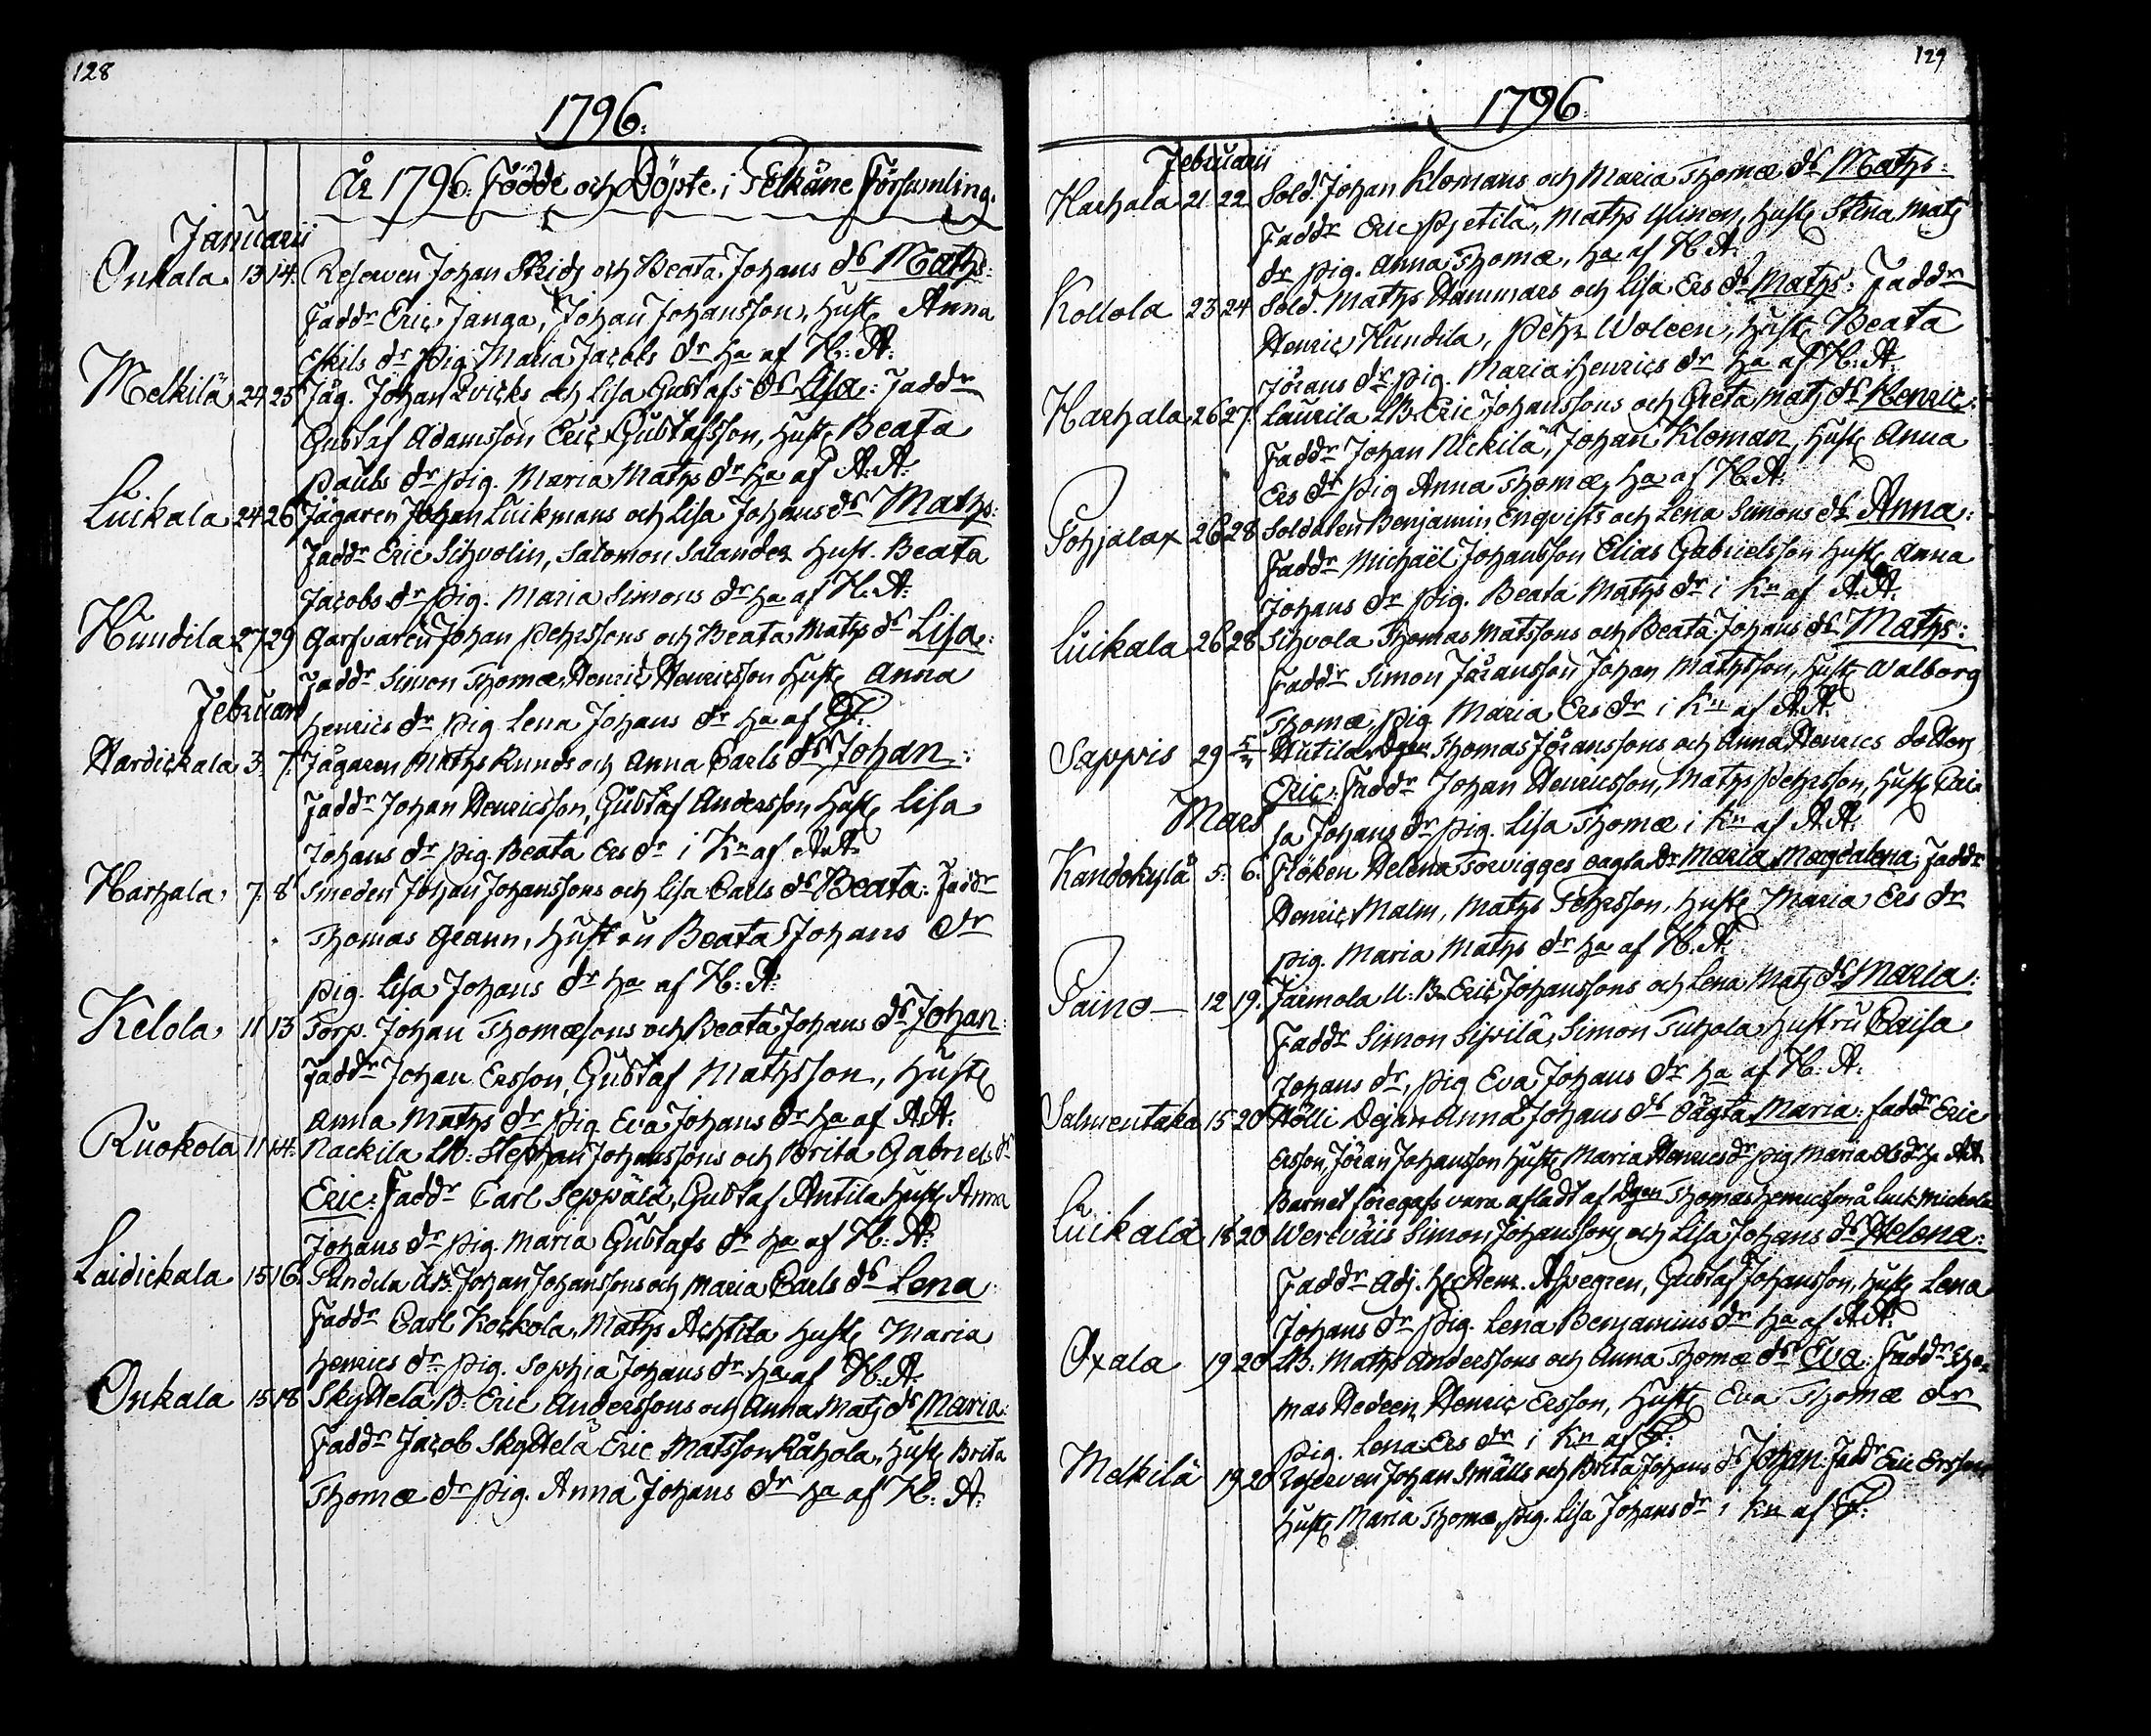 128
1796.
År 1796. Födde och Döpte i Pelkäne Församling.
Januarii
Onkala 13 14. Reserven Johan Skids och Beata Johans ds Maths:
Faddr Eric Janga, Johan Johansson, Hust. Anna
Eskils dr Pig. Maria Jacobs dr ha af H: A:
Melkilä 24 25 Jäg. Johan Qvicks och Lisa Gustafs ds Lisa: Faddr
Gustaf Adamsson Eric Gustafsson, Hust. Beata
Pauls dr Pig. Maria Maths dr ha af A: A:
Luikala 24 26 Jägaren Johan Luikmans och Lisa Johans ds Maths:
Faddr Eric Sihvolin, Salomon Salander Hust. Beata
Jacobs dr Pig. Maria Simons dr ha af H: A:
Kundila 27 29 Garfvaren Johan Pehrssons och Beata Maths ds Lisa:
Faddr Simon Thomæ, Henric Henricsson Hust. Anna
Februari
Henrics dr Pig Lena Johans dr ha af
Hardickala 3. 7. Jägaren Maths Runds och Anna Carls ds Johan:
Faddr Johan Henricsson, Gustaf Andersson Hust. Lisa
Johans dr Pig. Beata Ers dr i Kn af A: A:
Harhala 7. 8 Smeden Johan Johanssons och Lisa Carls ds Beata: Faddr
Thomas Grann, Hustru Beata Johans dr
Pig. Lisa Johans dr ha af H: A:
Kelola 11 13 Torp. Johan Thomæsons och Beata Johans ds Johan:
Faddr Johan Ersson, Gustaf Mathsson, Hust.
Anna Maths dr Pig Eva Johans dr ha af A: A:
Ruokola 11 14. Nackila LB: Stephan Johanssons och Brita Gabriels ds
Eric: Faddr Carl Seppälä, Gustaf Antila Hust. Anna
Johans dr Pig. Maria Gustafs dr ha af H: A:
Laidickala 15 16. UB: Johan Johanssons och Maria Carls ds Lena:
Faddr Carl Kockola, Maths Achtila Hust. Maria
Henrics dr. Pig. Sophia Johans dr ha af H: A:
Onkala 15 18 Skyttelä B: Eric Anderssons och Anna Mats ds Maria:
Faddr Jacob Skyttelä Eric Matsson Råhola, Hust. Brita
Thomæ dr Pig. Anna Johans dr ha af H: A:
129
1796.
Februarii
Harhala 21 22 Sold. Johan Klomans och Maria Thomæ ds Maths:
Faddr Eric Pjetilä, Maths Ylinen, Hust. Stina Mats
dr Pig. Anna Thomæ, ha af H: A:
Kollola 23 24 Sold. Maths Hammars och Lisa Ers ds Maths: Faddr
Henric Kundila, Pehr Woleen, Hust. Beata
Jörans dr Pig. Maria Henrics dr ha af H: A:
Harhala 26 27. Laurila LB. Eric Johanssons och Greta Mats ds Henric:
Faddr Johan Nickilä, Johan Kloman, Hust. Anna
Ers dr Pig Anna Thomæ, ha af H: A:
Pohjalax 26 28 Soldaten Benjamin Enqvists och Lena Simons ds Anna:
Faddr Michaël Johansson Elias Gabrielsson Hust. Anna
Johans dr Pig. Beata Maths dr i Kn af A: A:
Luikala 26 28 Sihvola Thomas Matssons och Beata Johans ds Maths:
Faddr Simon Jöransson Johan Mathsson, Hust. Walborg
Thomæ, Pig. Maria Ers dr i Kn af A: A:
Sappis 29 Autila Dgen Thomas Jöranssons och Anna Henrics dotters
Eric: Faddr Johan Henricsson, Maths Pehrsson, Hust. Cai-
Mars
sa Johans dr Pig. Lisa Thomæ i Kn af A: A:
Kandokylä 5. 6. Flöken Helena Torwigges oägta dr Maria Magdalena: Faddr
Henric Malm, Maths Pehrsson, Hust. Maria Ers dr
Pig. Maria Maths dr ha af H: A:
Paino 12 19. Jaimola U: B. Eric Johanssons och Lena Mats ds Maria:
Faddr Simon Sipilä, Simon Tuhola Hustru Caisa
Johans dr, Pig Eva Johans dr ha af H: A:
Salmentaka 15 20 Hölli Dejan Anna Johans ds oägta Maria: Faddr Eric
Ersson, Jöran Johansson Hust. Maria Henrics dr Pig Maria dr ha A: A:
Barnet föregafs vara afladt af Dgen Thomas Henricss på Luik. Mickola
Luikala 18 20 Wertväis Simon Johanssons och Lisa Johans ds Helena:
Faddr Adj. Hr Henr. Ahlgren, Gustaf Johansson, Hust. Lena
Johans dr Pig. Lena Benjamins dr ha af A: A:
Oxala 19 20 LB. Maths Anderssons och Anna Thomæ ds Eva: Faddr Tho-
mas Hedeen, Henric Ersson, Hust. Eva Thomæ dr
Pig. Lena Ers dr i Kn af
Melkilä 19 20 Reserven Johan Smälls och Brita Johans ds Johan Faddr Eric Ersson
Hust. Maria Thomæ, Pig. Lisa Johans dr i Kn af